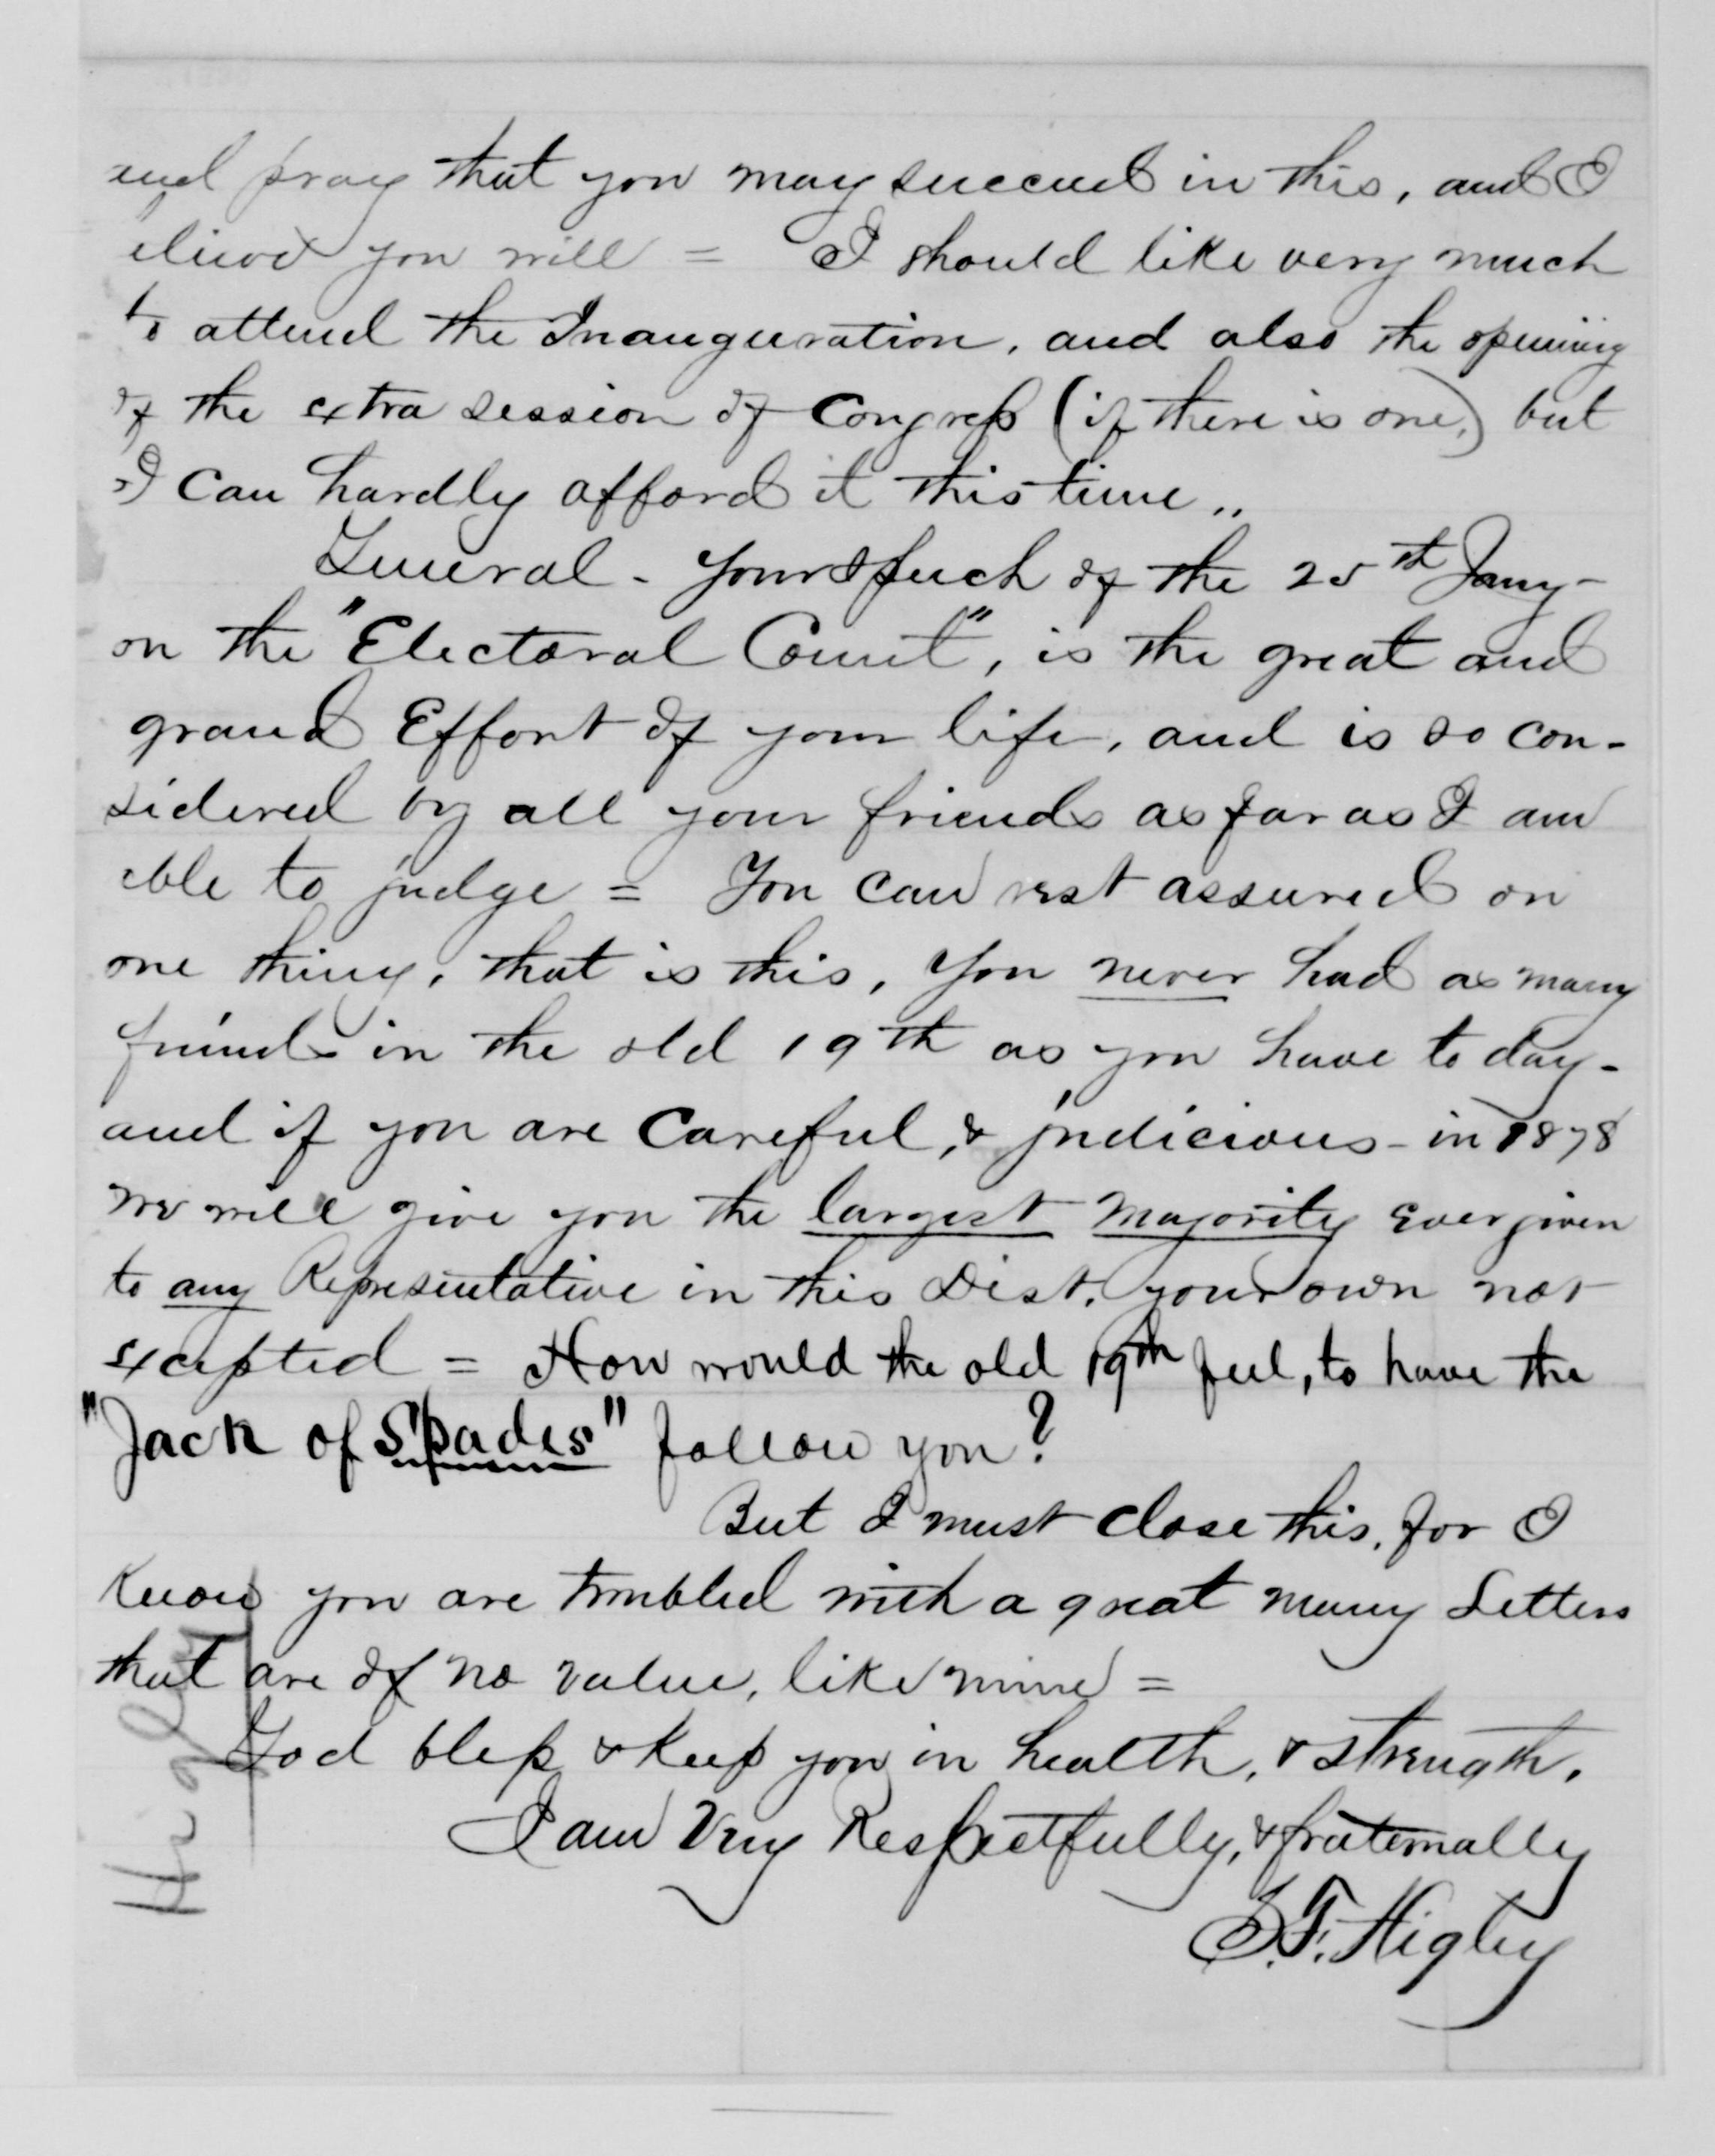 and pray that you may succeed in this, and I
elieve you will = I should like very much
to attend the Inauguration, and also the opening
of the extra session of Congress (if there is one,) but
I can hardly afford it this time ..
General - your Speech of the 25th Jany -
on the "Electoral Count", is the great and
grand Effort of your life, and is so con-
sidered by all your friends as far as I am
able to judge = You can rest assured on
one thing, that is this, you never had as many
friends in the old 19th as you have to day -
and if you are Careful, & judicious - in 1878
we will give you the largest majority ever given
to any Representative in this Dist. your own not
excepted = How would the old 19th feel, to have the
"Jack of Spades" follow you?
But I must close this, for I
Know you are troubled with a great many Letters
that are of no value, like mine =
God bless & Keep you in health, & strength.
I am Very Respectfully, & fraternally
S. F. Higley
Higley